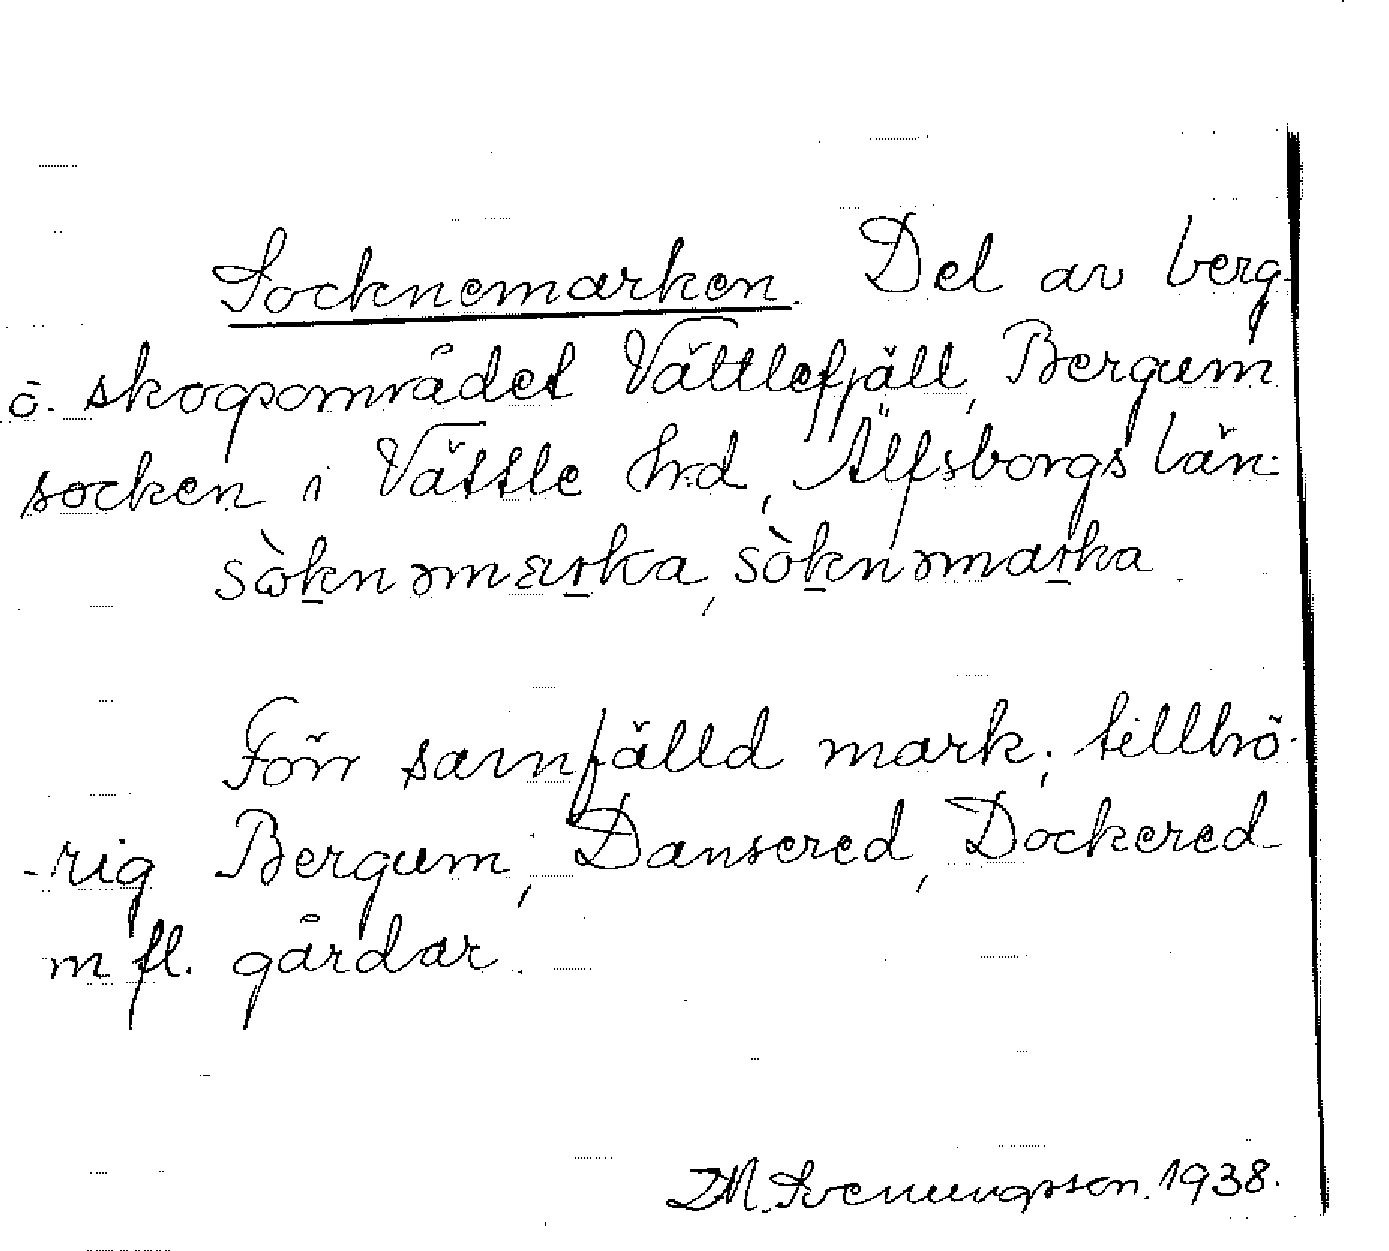 Socknemarken. Del av berg-
o. skogsområdet Vättlefjäll, Bergum
socken i Vättle hrd, Älfsborgs län:
sòknəmarka, sòknəmarka
Förr samfälld mark; tillhö-
-rig Bergum, Dansered, Dockered
m fl. gårdar.
D.M. Svenungsson. 1938.